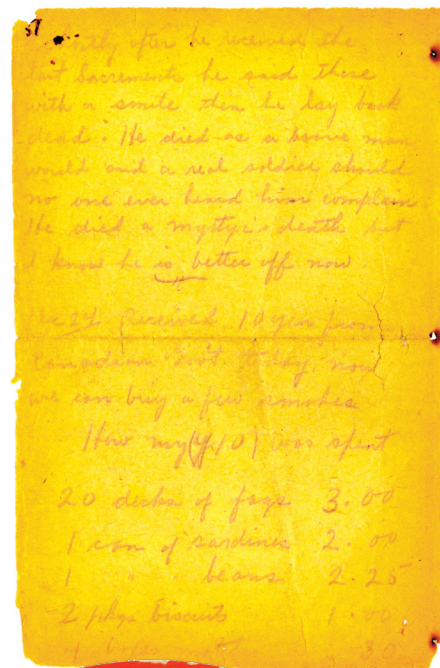 57
after he received the
last Sacrements he said these
with a smile then he lay back
dead. He died as a brave man
would and a real soldier should
no one ever heard him complain
He died a death but
I know he is better off now.
24 Received 10 yen from
Canadian Gov't today, now
we can buy a few smokes
How my (¥10) was spent
20 decks of fags 3.00
1 can of sardines 2.00
1 " " beans 2.25
2 pkgs biscuits 1.00
30